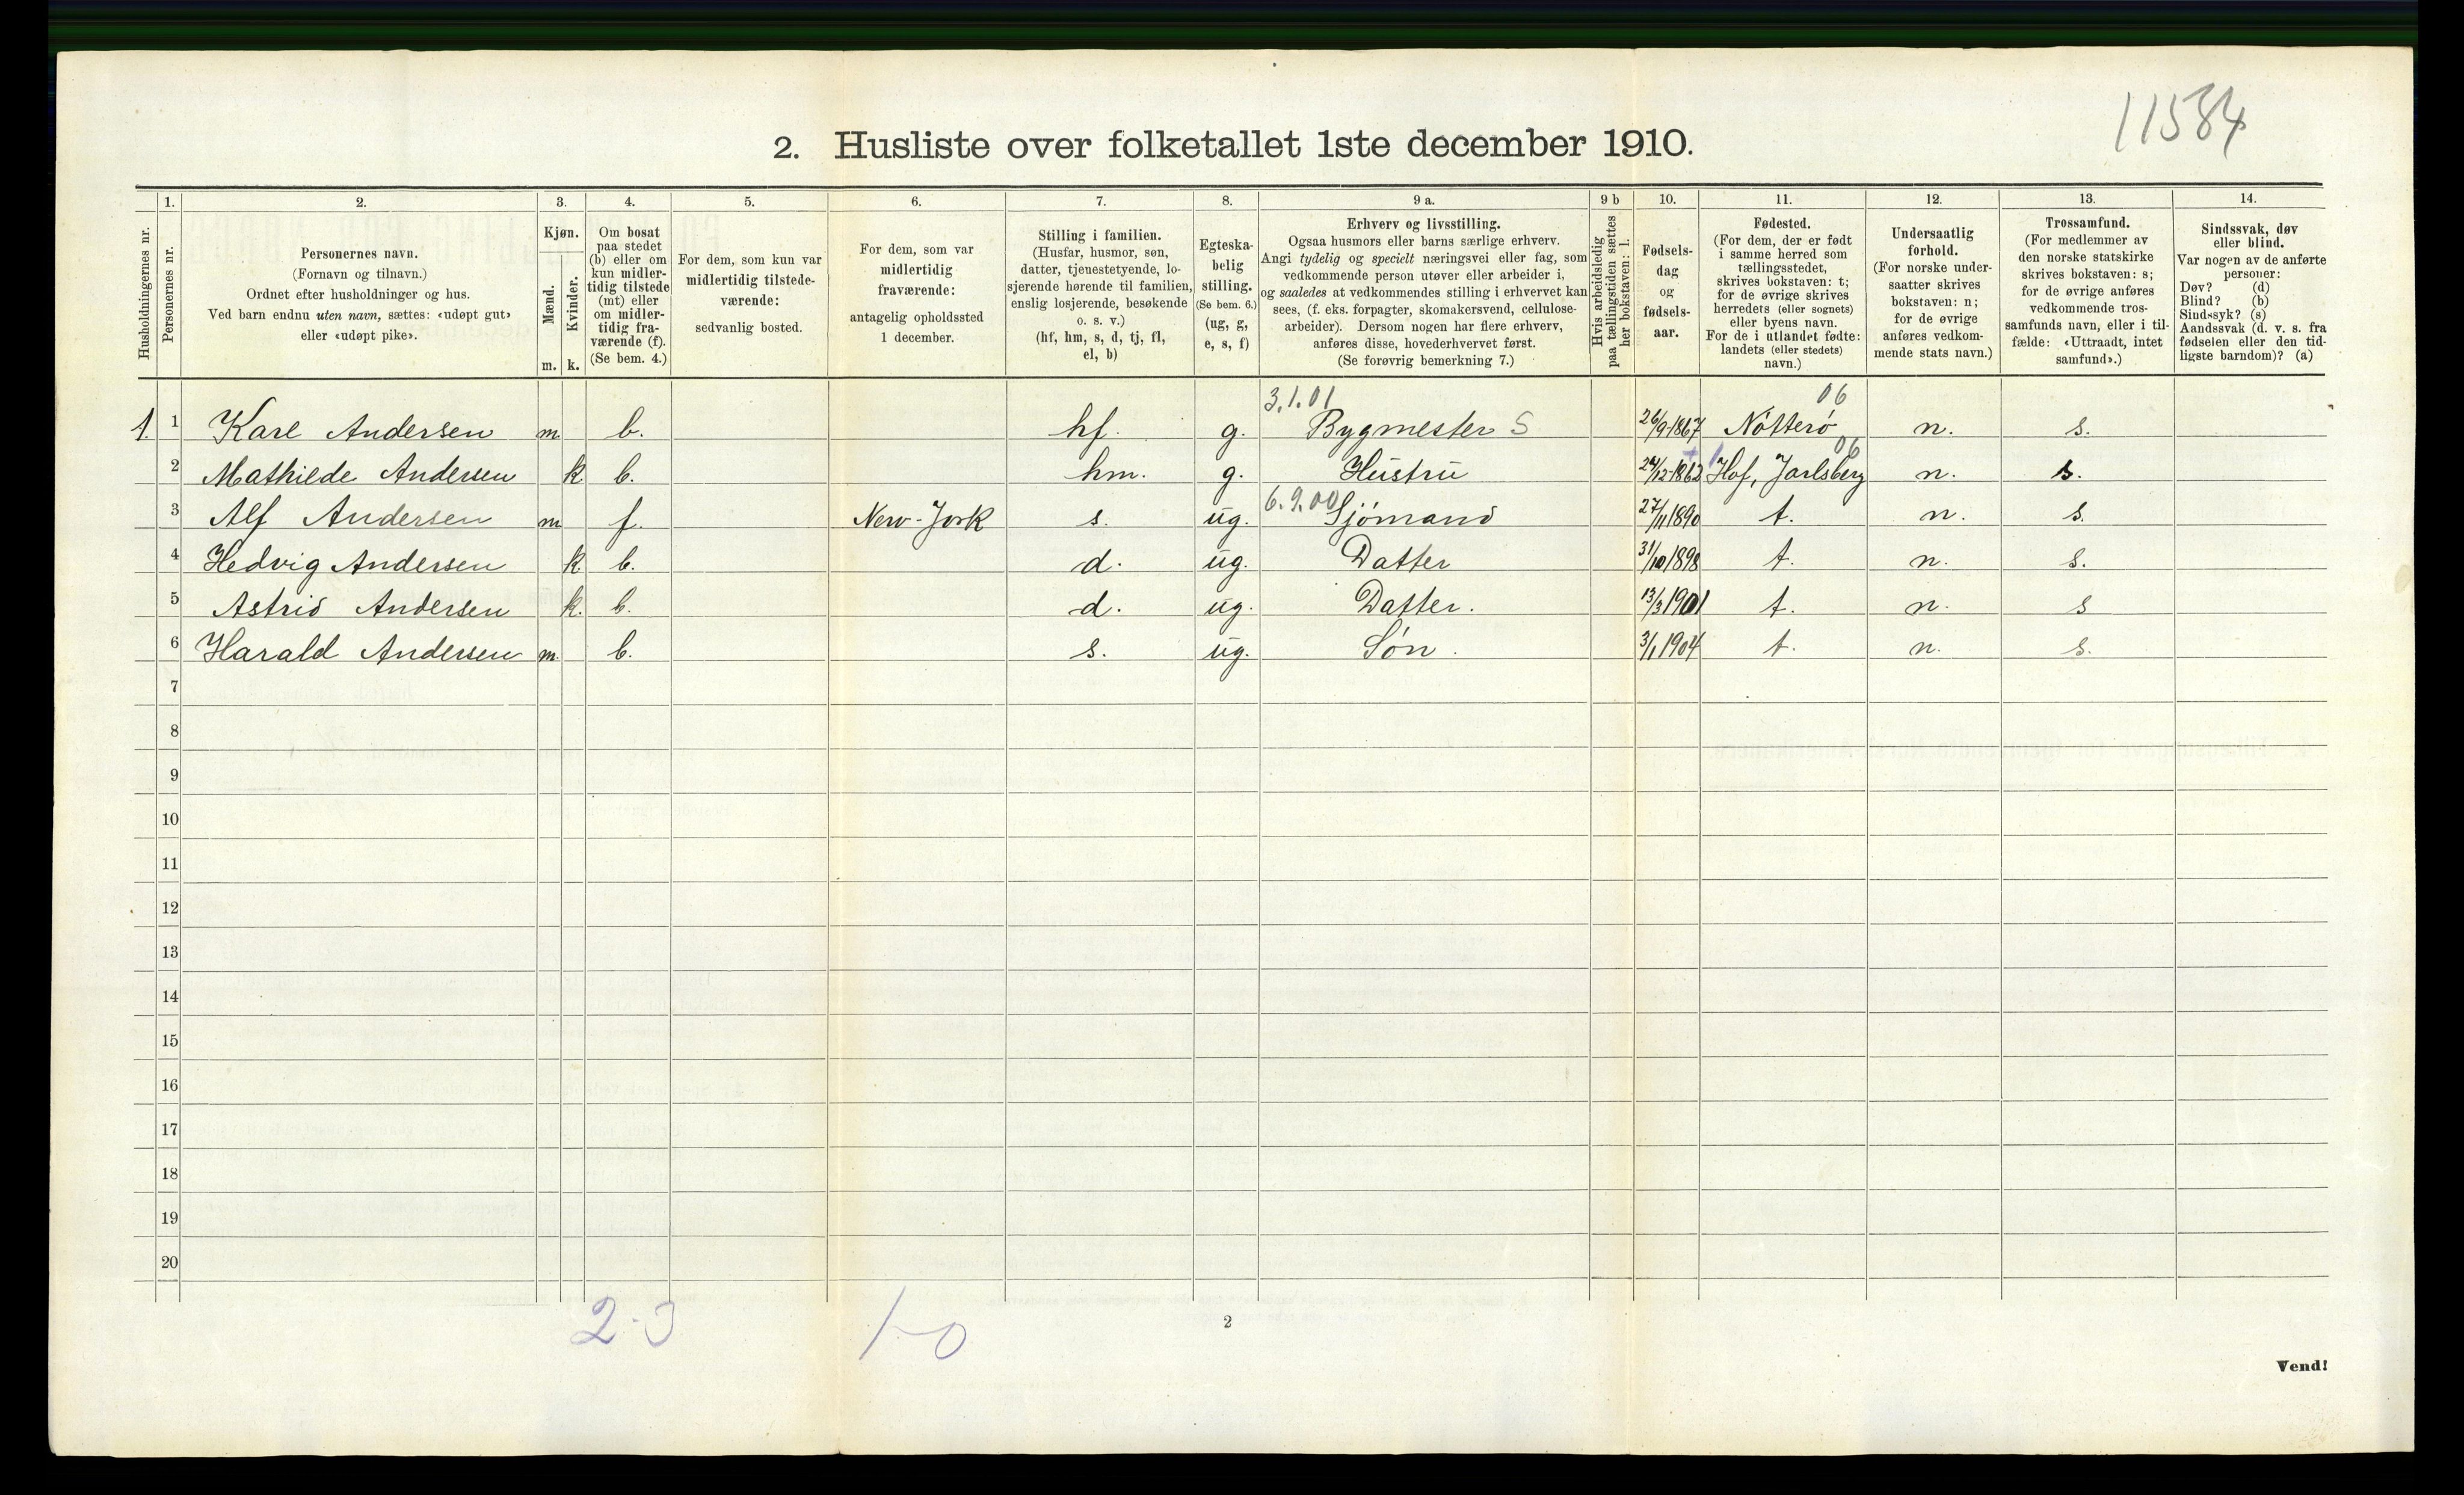 11584
2. Husliste over folketallet 1ste december 1910.
Husholdningernes nr.
1.
Personernes nr.
2.
Personernes navn.
(Fornavn og tilnavn.)
Ordnet efter husholdninger og hus.
Ved barn endnu uten navn, sættes: «udøpt gut»
eller «udøpt pike».
3.
Kjøn.
Mænd.
Kvinder.
m. k.
4.
Om bosat
paa stedet
(b) eller om
kun midler-
tidig tilstede
(mt) eller
om midler-
tidig fra-
værende (f).
(Se bem. 4.)
5.
For dem, som kun var
midlertidig tilstede-
værende:
sedvanlig bosted.
6.
For dem, som var
midlertidig
fraværende:
antagelig opholdssted
1 december.
7.
Stilling i familien.
(Husfar, husmor, søn,
datter, tjenestetyende, lo-
sjerende hørende til familien,
enslig losjerende, besøkende
o. s. v.)
(hf, hm, s, d, tj, fl,
el, b)
8.
Egteska-
belig
stilling.
(Se bem. 6.)
(ug, g,
e, s, f)
9 a.
Erhverv og livsstilling.
Ogsaa husmors eller barns særlige erhverv.
Angi tydelig og specielt næringsvei eller fag, som
vedkommende person utøver eller arbeider i,
og saaledes at vedkommendes stilling i erhvervet kan
sees, (f. eks. forpagter, skomakersvend, cellulose-
arbeider). Dersom nogen har flere erhverv,
anføres disse, hovederhvervet først.
(Se forøvrig bemerkning 7.)
9 b
Hvis arbeidsledig
paa tællingstiden sættes
her bokstaven: l.
10.
Fødsels-
dag
og
fødsels-
aar.
11.
Fødested.
(For dem, der er født
i samme herred som
tællingsstedet,
skrives bokstaven: t;
for de øvrige skrives
herredets (eller sognets)
eller byens navn.
For de i utlandet fødte:
landets (eller stedets)
navn.)
12.
Undersaatlig
forhold.
(For norske under-
saatter skrives
bokstaven: n;
for de øvrige
anføres vedkom-
mende stats navn.)
13.
Trossamfund.
(For medlemmer av
den norske statskirke
skrives bokstaven: s;
for de øvrige anføres
vedkommende tros-
samfunds navn, eller i til-
fælde: «Uttraadt, intet
samfund».)
14.
Sindssvak, døv
eller blind.
Var nogen av de anførte
personer:
Døv? (d)
Blind? (b)
Sindssyk? (s)
Aandssvak (d. v. s. fra
fødselen eller den tid-
ligste barndom)? (a)
3.1.01 06
1. 1 Karl Andersen m. b. hf. g. Bygmester S 26/9-1867 Nötterö n. s.
06
2 Mathilde Andersen k b. hm. g. Hustru 24/12-1862 Hof, Jarlsberg n. s.
6.9.00
3 Alf Andersen m f. New-York s. ug. Sjömand 27/11 1890 t. n. s.
4 Hedvig Andersen k b. d. ug. Datter 31/10 1898 t. n. s.
5 Astrid Andersen k. b. d. ug. Datter. 13/3 1901 t. n. s
6 Harald Andersen m. b. s. ug. Sön. 3/1 1904 t. n. s.
7
8
9
10
11
12
13
14
15
16
17
18
19
20
2-3 1-0
2
Vend!